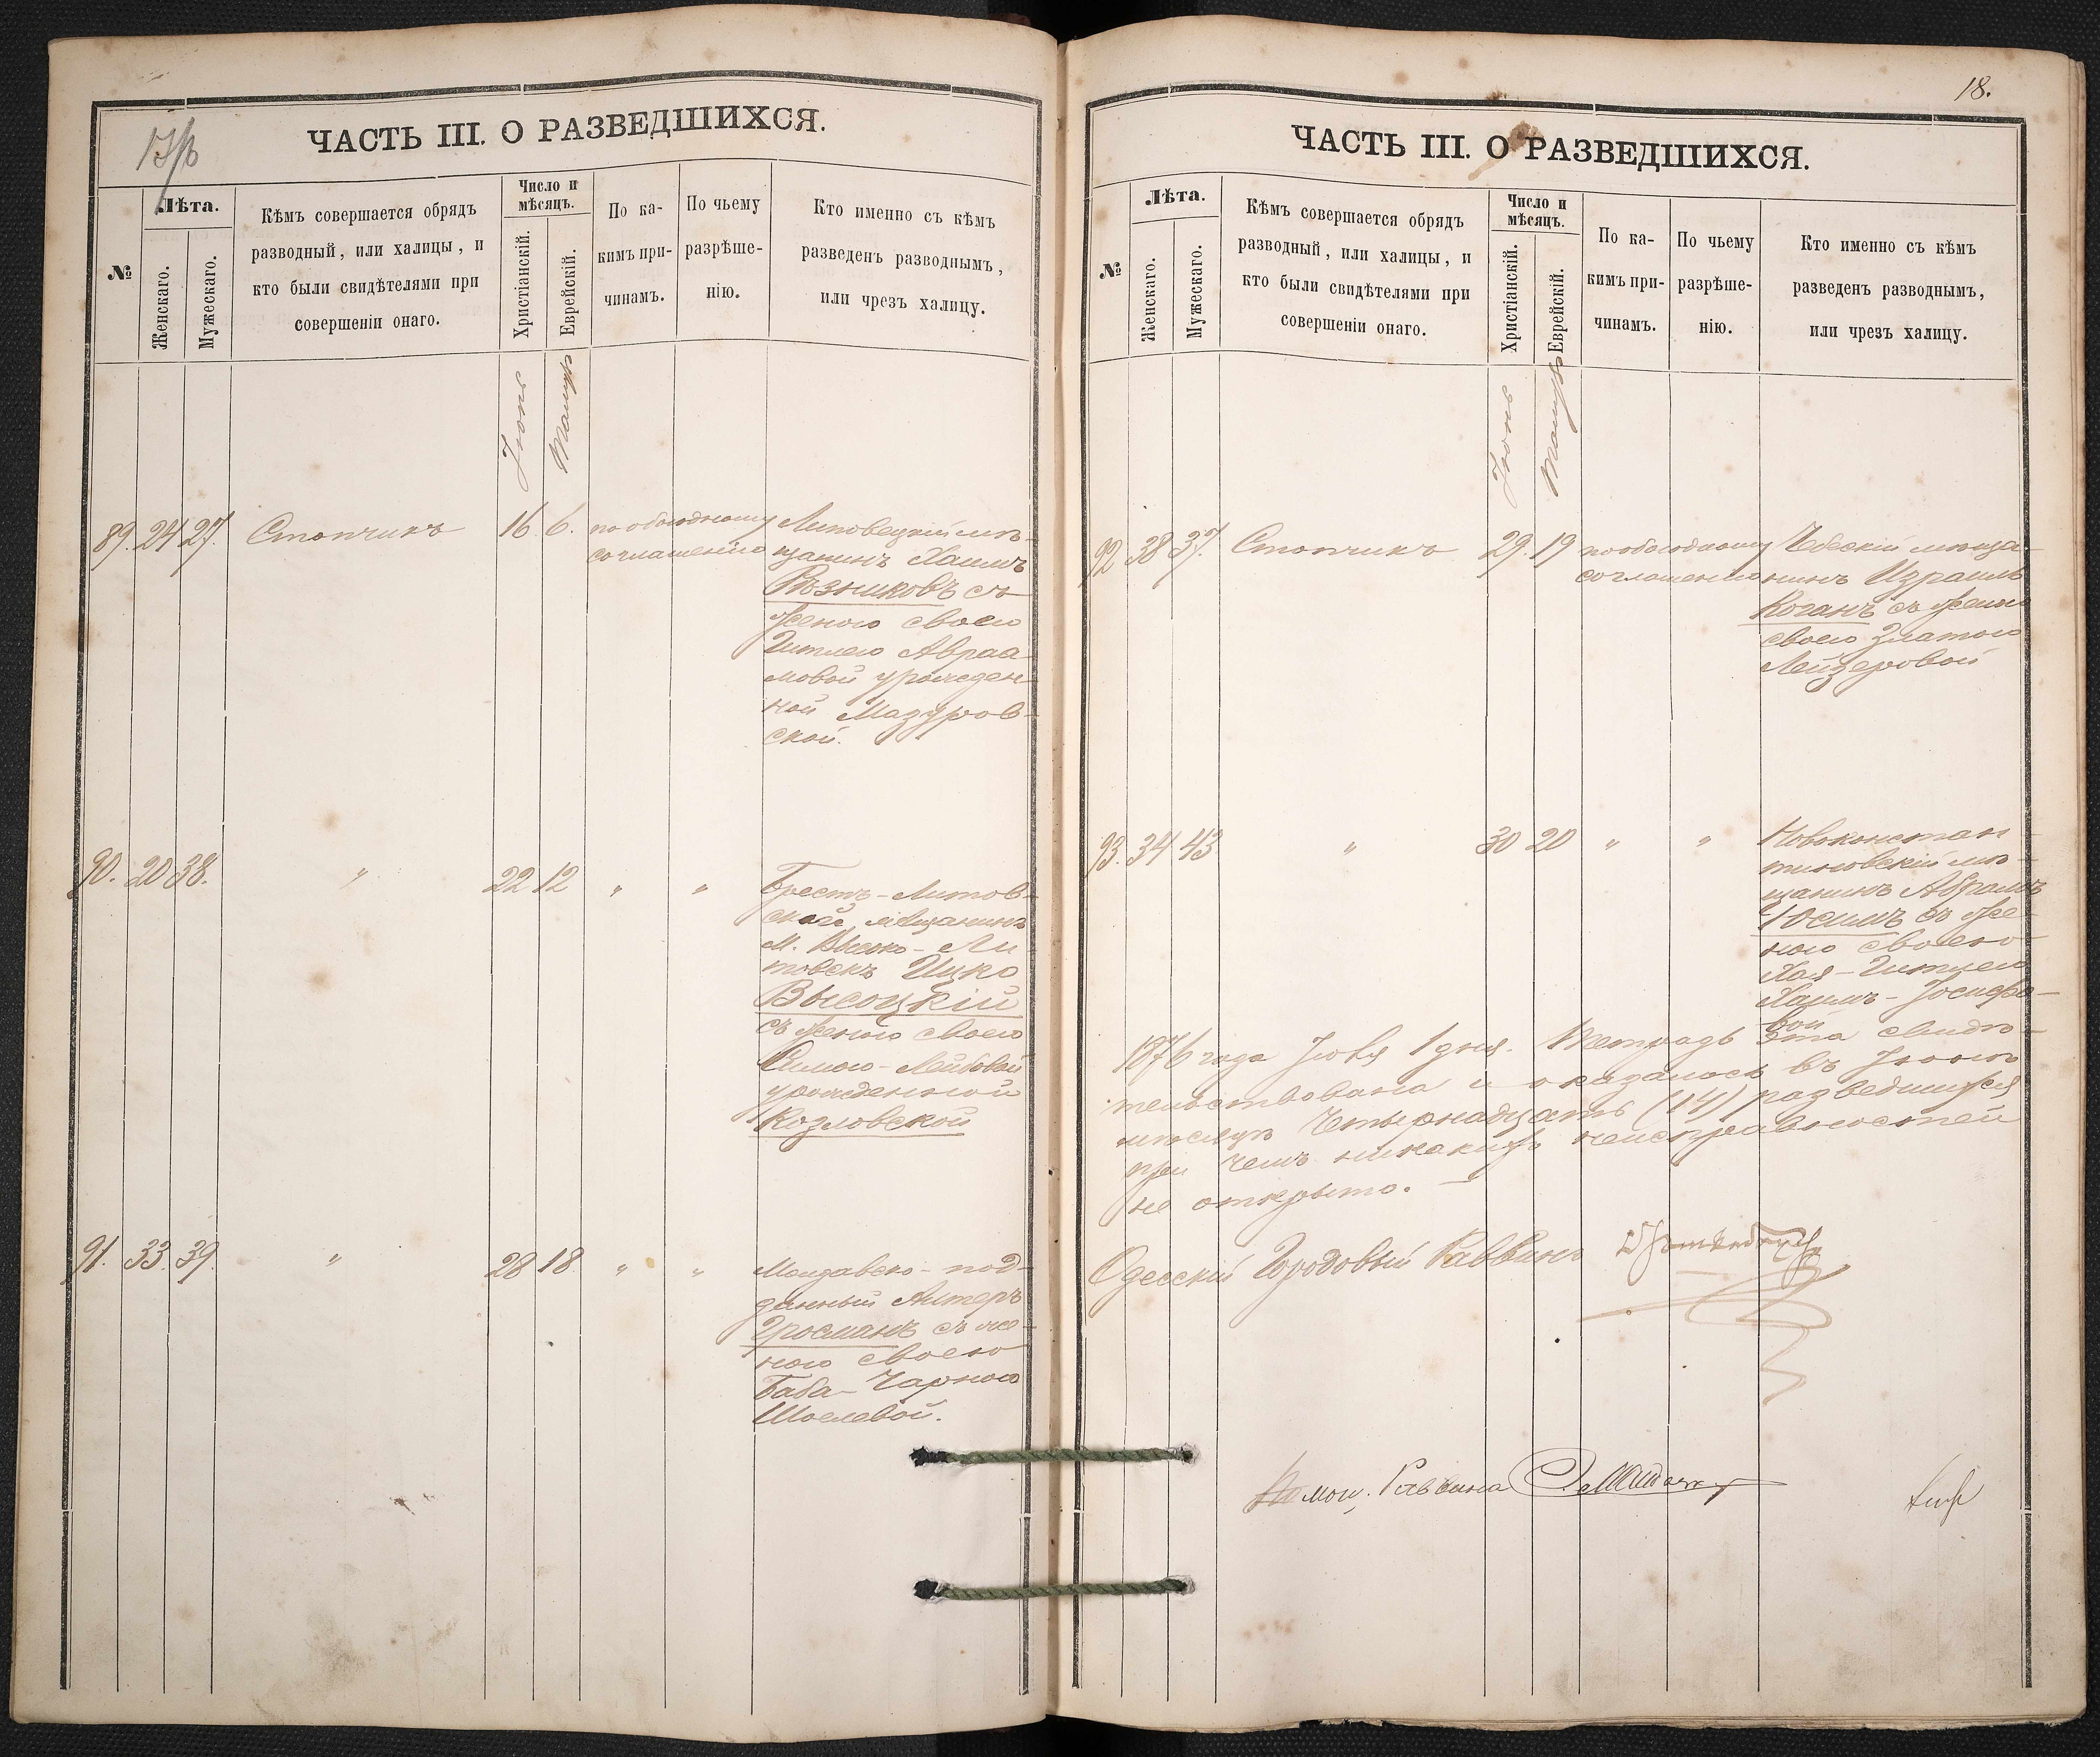 ЧАСТЬ III. О РАЗВЕДШИХСЯ.
№
Лѣта.
Женскаго.
Мужескаго.
Кѣмъ совершается обрядъ
разводный, или халицы, и
кто были свидѣтелями при
совершеніи онаго.
Число и
мѣсяцъ.
Христіанскій.
Еврейскій.
По ка-
кимъ при-
чинамъ.
По чьему
разрѣше-
нію.
Кто именно съ кѣмъ
разведенъ разводнымъ,
или чрезъ халицу.
Іюнь
Тамузъ
89. 24 27. Стопчикъ 16. 6. по обоюдному
соглашенію
Липовецкій мѣ-
щанинъ Хаимъ
Рѣзниковъ съ
женою своею
Гитлею Авраа
мовой урожден-
ной Мазуров-
ской.
90. 20 38. " 22 12 " "
Брестъ-Литов-
скій, мѣщанинъ
М. Высоко-Ли
товскъ Ицко
Высоцкій
съ женою своею
Симою-Лейбовой
урожденной
Козловской
91. 33. 39. " 28 18 " "
Молдавско-под-
данный Алтеръ
Гросманъ съ же-
ною своею
Баба-Чарною
Шоелевой.
18.
ЧАСТЬ III. О РАЗВЕДШИХСЯ.
№
Лѣта.
Женскаго.
Мужескаго.
Кѣмъ совершается обрядъ
разводный, или халицы, и
кто были свидѣтелями при
совершеніи онаго.
Число и
мѣсяцъ.
Христіанскій.
Еврейскій.
По ка-
кимъ при-
чинамъ.
По чьему
разрѣше-
нію.
Кто именно съ кѣмъ
разведенъ разводнымъ,
или чрезъ халицу.
Іюнь
Тамузъ
92 38 37. Стопчикъ 29. 19 по обоюдному
соглашенію
мѣща-
нинъ Израиль
Коганъ съ женою
своею Златою
Лейзеровой
93. 34 43 " 30 20 " "
Новоконстан-
тиновскій мѣ-
щанинъ Абрамъ
Юсимъ съ же-
ною своею
Хая-Гитлею
Хаимъ-Іосифо-
вой
1876 года Іюля 1 дня. Тетрадь эта свидѣ-
тельствована и оказалось въ Іюнѣ
мѣсяцѣ Четырнадцать (14) разведшихся
при чемъ никакихъ неисправностей
не открыто.
Одесскій Городовый Раввинъ
Помощ. Раввина